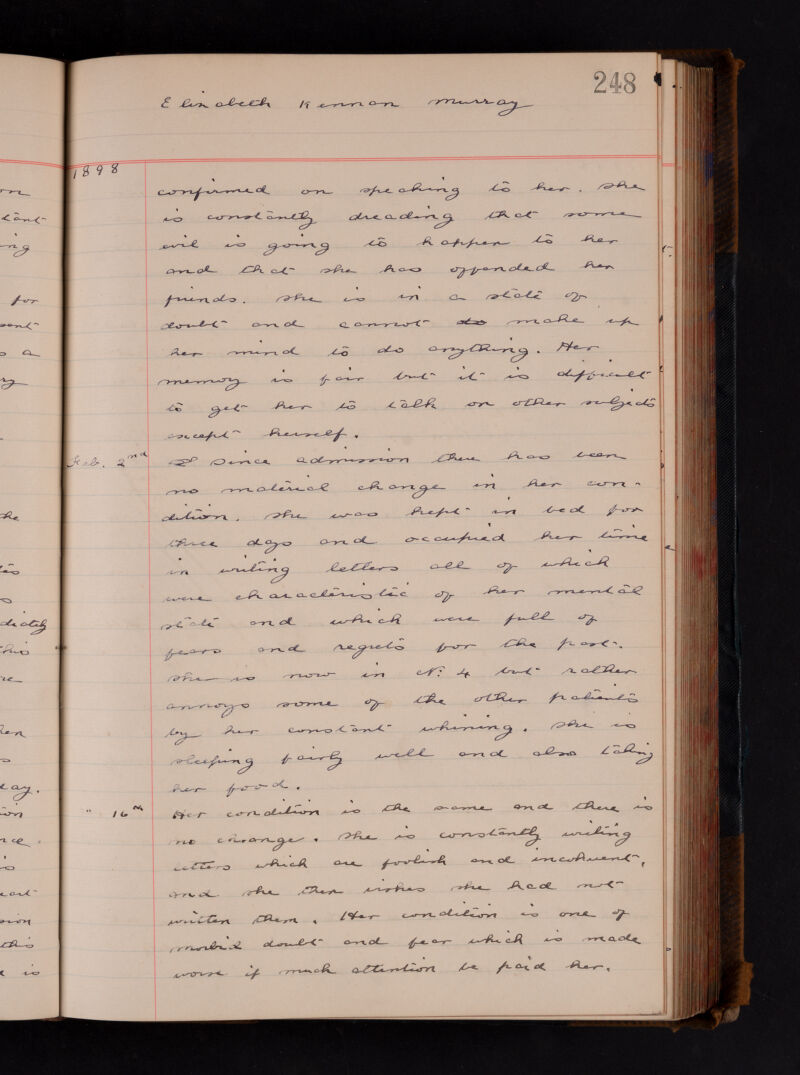 248
Elizabeth Kennan Murray
1898
confirmed on speaking to her. She
is constantly dreading that some
evil is going to happen to her
and that she has offended her
friends. She is in a state of
doubt and cannot do make up
her mind to do anything. Her
memory is fair but it is difficult
to get her to talk on other subjects
except herself.
Feb. 2nd Since admission there has been
no material change in her con-
dition. She was kept in bed for
three days and occupied her time
in writing letters all of which
were characteristic of her mental
state and which were full of
fears and regrets for the past.
She is now in No. 4 but rather
annoys some of the other patients
by her constant whining. She is
sleeping fairly well and also taking
her food.
" 16th Her condition is the same and there is
no change. She is constantly writing
letters which are foolish and incoherent,
and she then wishes she had not
written them. Her condition is one of
morbid doubt and fear which is made
worse if much attention be paid her.